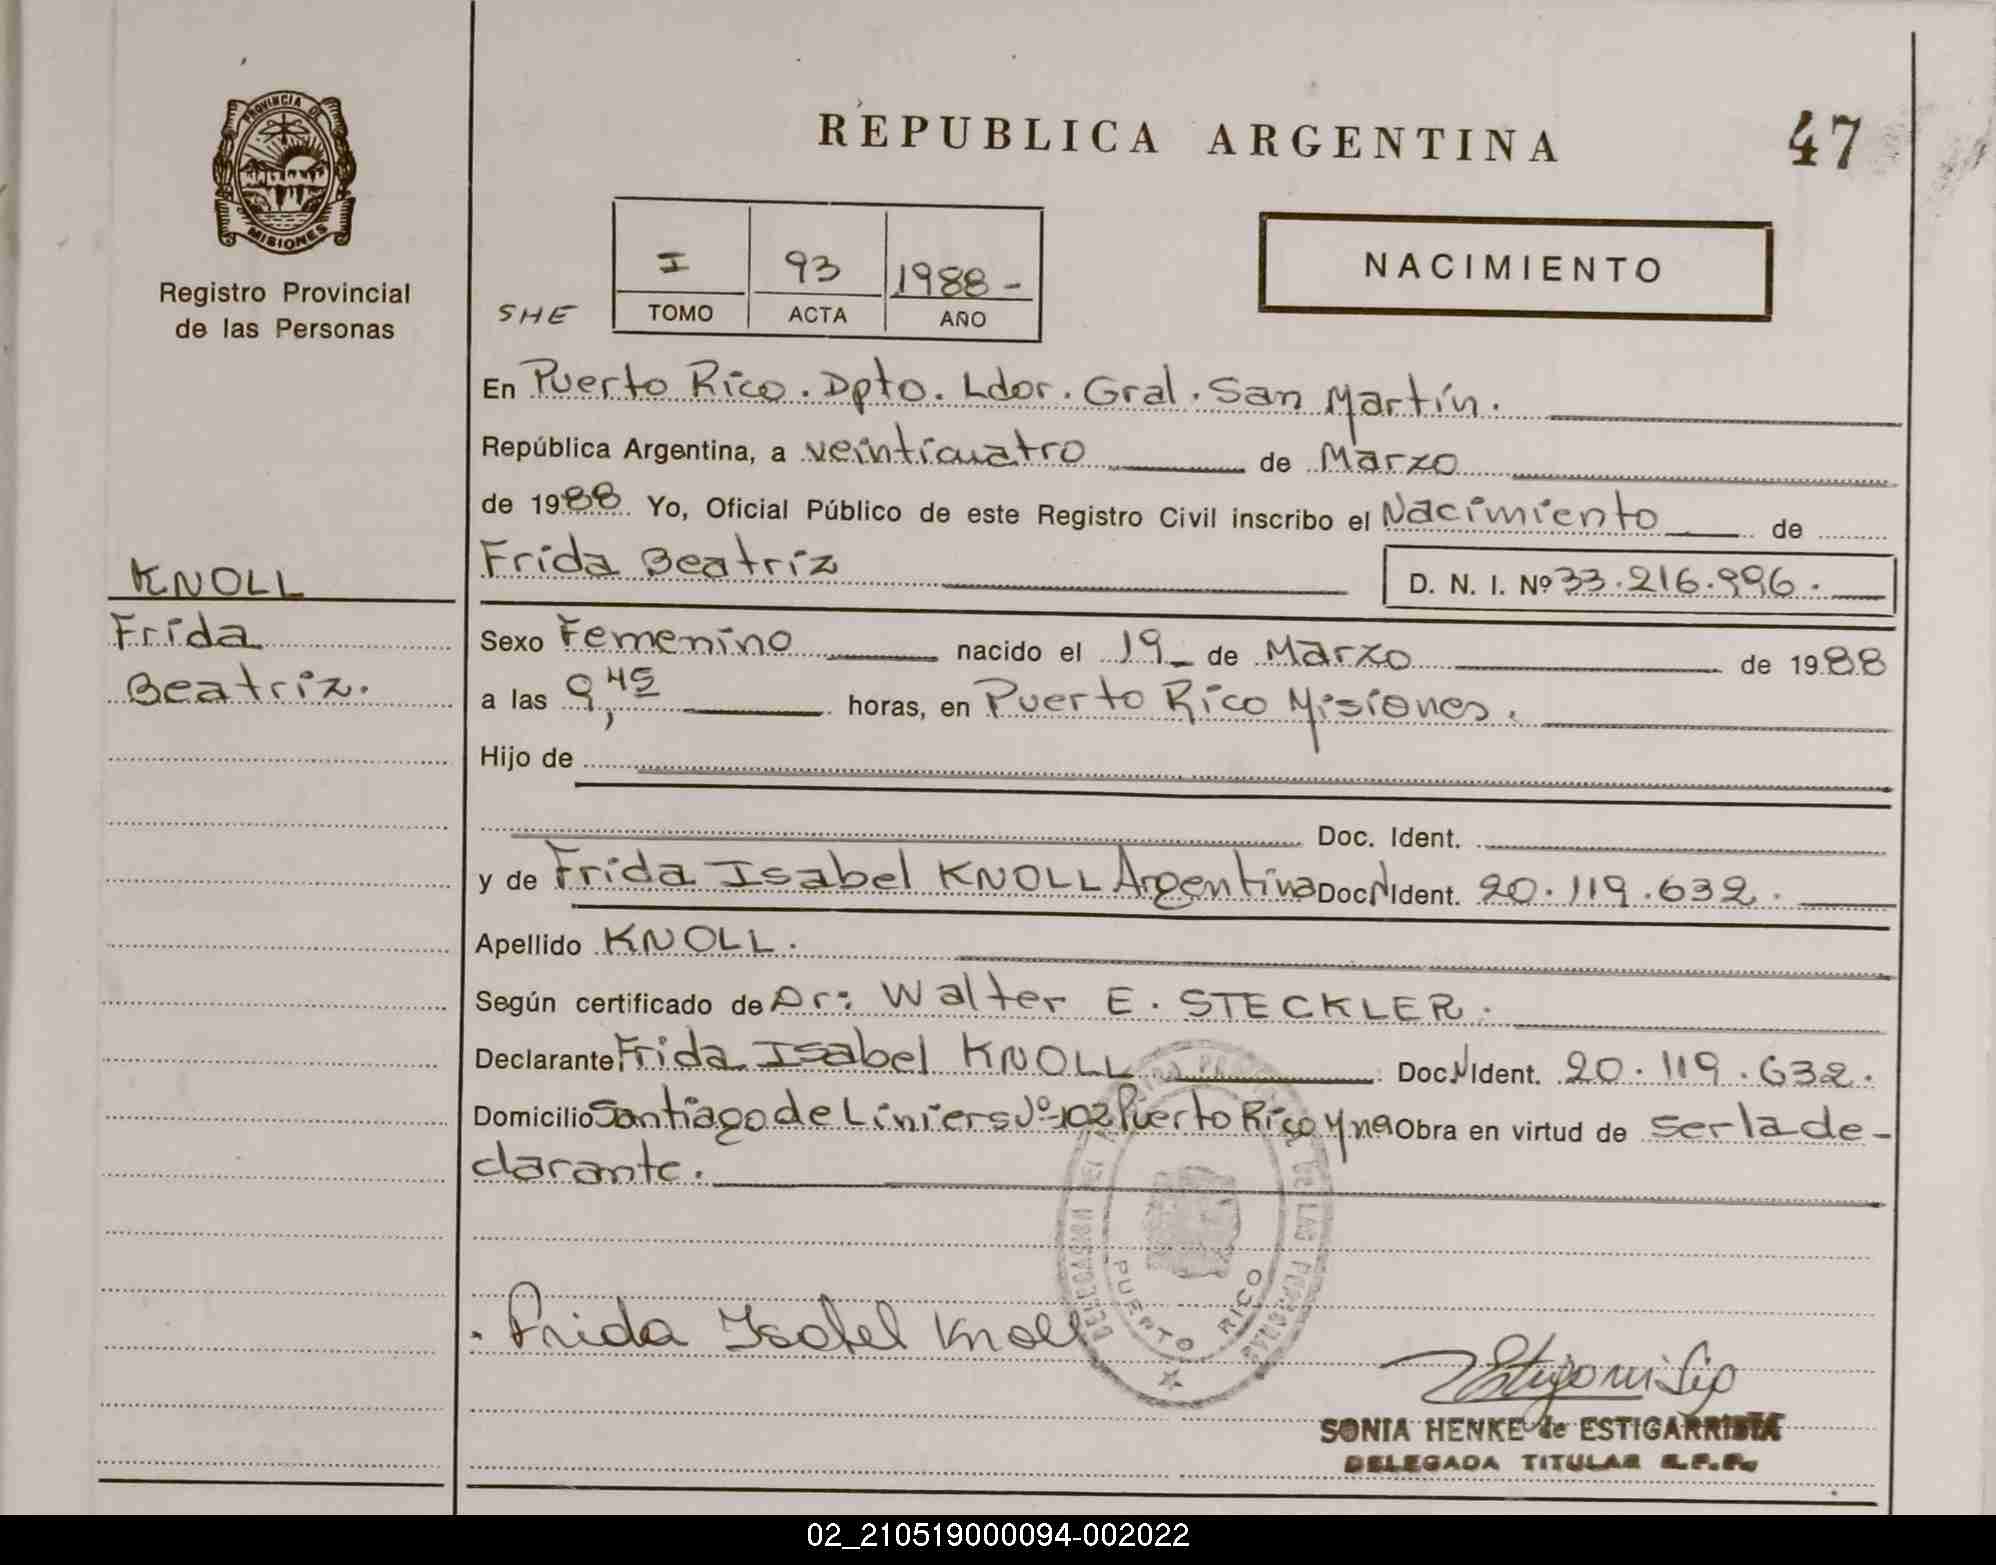 PROVINCIA DE
MISIONES
Registro Provincial
de las Personas
KNOLL
Frida
Beatriz.
REPUBLICA ARGENTINA
47
SHE
I 93 1988-
TOMO ACTA AÑO
NACIMIENTO
En Puerto Rico. Dpto. Ldor. Gral. San Martín.
República Argentina, a veinticuatro de Marzo
de 1988. Yo, Oficial Público de este Registro Civil inscribo el Nacimiento de
Frida Beatriz D. N. I. Nº 33.216.996.
Sexo Femenino nacido el 19 de Marzo de 1988
a las 9,45 horas, en Puerto Rico Misiones.
Hijo de
Doc. Ident.
y de Frida Isabel KNOLL Argentina Doc. N Ident. 20.119.632.
Apellido KNOLL.
Según certificado de Dr: Walter E. STECKLER.
Declarante Frida Isabel KNOLL Doc. N Ident. 20.119.632.
Domicilio Santiago de Liniers Nº 102 Puerto Rico Mnes Obra en virtud de ser la de-
clarante.
DELEGACION DEL REGISTRO PROVINCIAL DE LAS PERSONAS
PUERTO RICO
Frida Isabel Knoll
SONIA HENKE de ESTIGARRIBIA
DELEGADA TITULAR R.P.P.
02_210519000094-002022